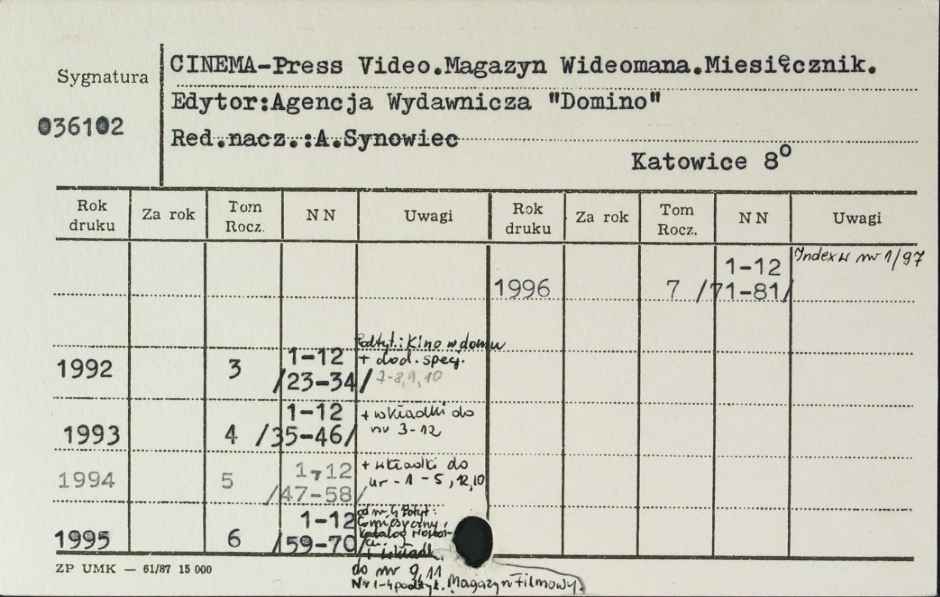 Sygnatura
CINEMA-Press Video.Magazyn Wideomana.Miesięcznik.
Edytor:Agencja Wydawnicza "Domino"
036102
Red.nacz.:A.Synowiec
Katowice 8°
Rok druku Za rok Tom Rocz. NN Uwagi Rok druku Za rok Tom Rocz. NN Uwagi
1996 7 1-12 /71-81/ Index w nr 1/97
1992 3 1-12 /23-34/ Podtyt.: Kino w domu
+ dod. specj.
7-8,9,10
1993 4 1-12 /35-46/ + wkładki do
nr 3-12
1994 5 1-12 /47-58/ + wkładki do
nr - 1 - 5, 12, 10
1995 6 1-12 /59-70/ od nr. 4 Podtyt:
Katalog
+ wkładk.
do nr 9,11
Nr 1-4 podtyt. Magazyn Filmowy.
ZP UMK — 61/87 15 000